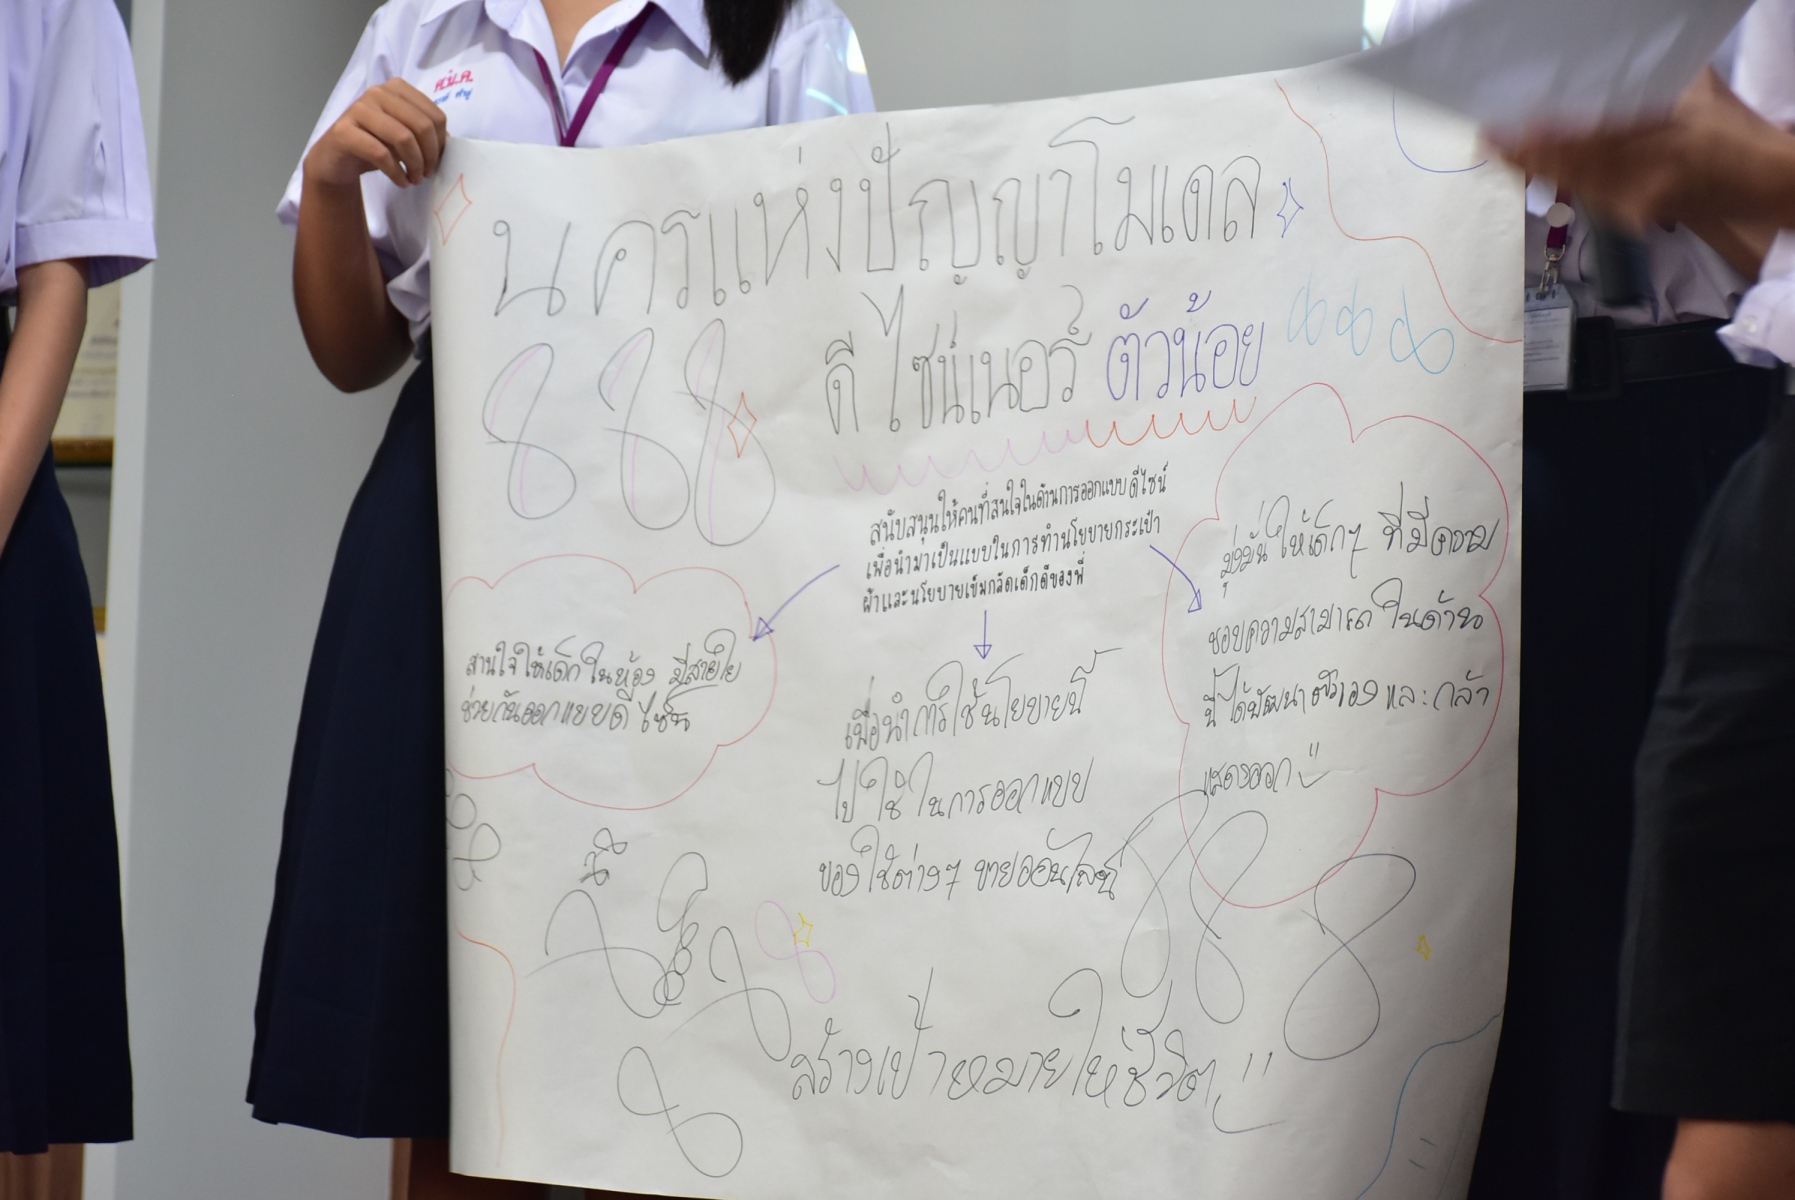 ศ.ม.ค.
นครแห่งปัญญาโมเดล
888
ดีไซน์เนอร์ ตัวน้อย
888
สนับสนุนให้คนที่สนใจในด้านการออกแบบดีไซน์
เพื่อนำมาเป็นแบบในการทำนโยบายกระเป๋า
ผ้าและนโยบายเข็มกลัดเด็กดีของพี่
สานใจให้เด็กในห้อง มีสายใย
ช่วยกันออกแบบดีไซน์
เพื่อนำการใช้นโยบายนี้
ไปใช้ในการออกแบบ
ของใช้ต่างๆ ขายออนไลน์
มุ่งมั่นให้เด็กๆ ที่มีความ
ชอบความสามารถในด้าน
นี้ได้พัฒนาตัวเองและกล้า
แสดงออก
888
8
8
สร้างเป้าหมายให้ชีวิต